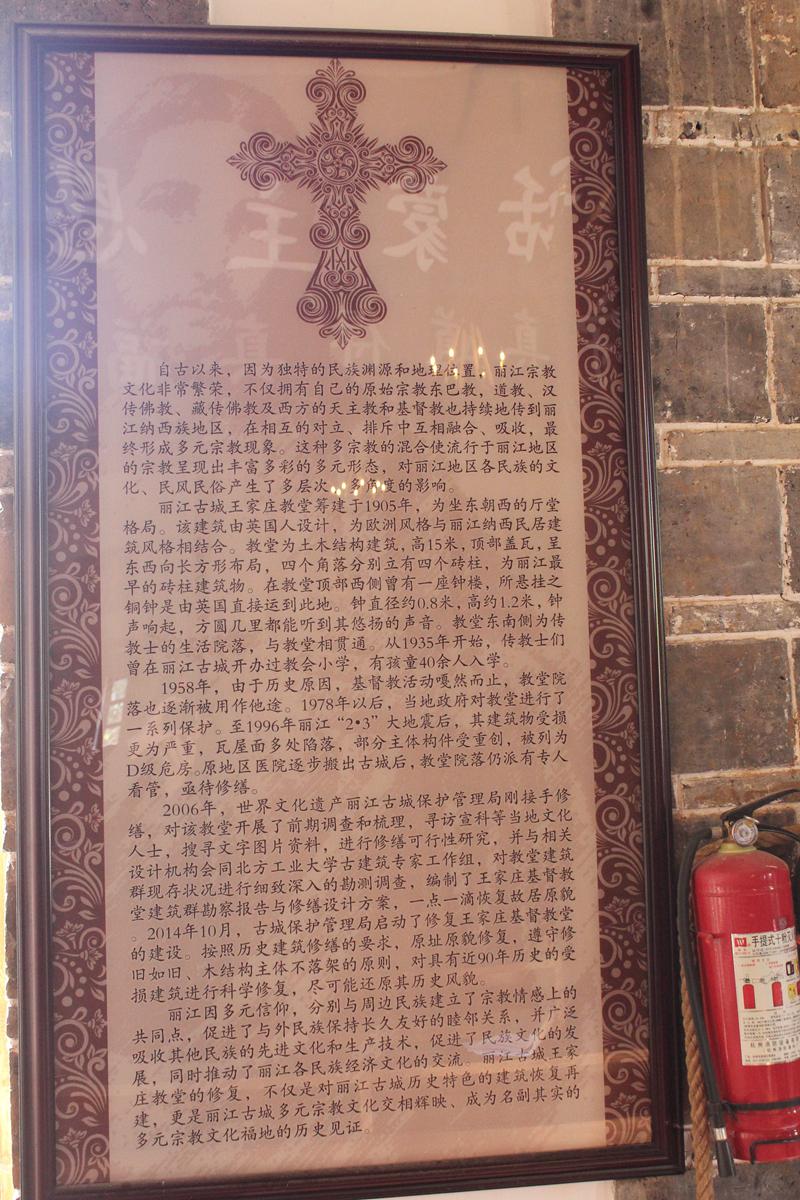 自古以来，因为独特的民族渊源和地理位置，丽江宗教
文化非常繁荣，不仅拥有自己的原始宗教东巴教，道教、汉
传佛教、藏传佛教及西方的天主教和基督教也持续地传到丽
江纳西族地区，在相互的对立、排斥中互相融合、吸收，最
终形成多元宗教现象。这种多宗教的混合使流行于丽江地区
的宗教呈现出丰富多彩的多元形态，对丽江地区各民族的文
化、民风民俗产生了多层次、多角度的影响。
丽江古城王家庄教堂筹建于1905年，为坐东朝西的厅堂
格局。该建筑由英国人设计，为欧洲风格与丽江纳西民居建
筑风格相结合。教堂为土木结构建筑，高15米，顶部盖瓦，呈
东西向长方形布局，四个角落分别立有四个砖柱，为丽江最
早的砖柱建筑物。在教堂顶部西侧曾有一座钟楼，所悬挂之
铜钟是由英国直接运到此地。钟直径约0.8米，高约1.2米，钟
声响起，方圆几里都能听到其悠扬的声音。教堂东南侧为传
教士的生活院落，与教堂相贯通。从1935年开始，传教士们
曾在丽江古城开办过教会小学，有孩童40余人入学。
1958年，由于历史原因，基督教活动嘎然而止，教堂院
落也逐渐被用作他途。1978年以后，当地政府对教堂进行了
一系列保护。至1996年丽江“2•3”大地震后，其建筑物受损
更为严重，瓦屋面多处陷落，部分主体构件受重创，被列为
D级危房。原地区医院逐步搬出古城后，教堂院落仍派有专人
看管，亟待修缮。
2006年，世界文化遗产丽江古城保护管理局刚接手修
缮，对该教堂开展了前期调查和梳理，寻访宣科等当地文化
人士，搜寻文字图片资料，进行修缮可行性研究，并与相关
设计机构会同北方工业大学古建筑专家工作组，对教堂建筑
群现存状况进行细致深入的勘测调查，编制了王家庄基督教
堂建筑群勘察报告与修缮设计方案，一点一滴恢复故居原貌
。2014年10月，古城保护管理局启动了修复王家庄基督教堂
的建设。按照历史建筑修缮的要求，原址原貌修复，遵守修
旧如旧、木结构主体不落架的原则，对具有近90年历史的受
损建筑进行科学修复，尽可能还原其历史风貌。
丽江因多元信仰，分别与周边民族建立了宗教情感上的
共同点，促进了与外民族保持长久友好的睦邻关系，并广泛
吸收其他民族的先进文化和生产技术，促进了民族文化的发
展，同时推动了丽江各民族经济文化的交流。丽江古城王家
庄教堂的修复，不仅是对丽江古城历史特色的建筑恢复再
建，更是丽江古城多元宗教文化交相辉映、成为名副其实的
多元宗教文化福地的历史见证。
手提式干粉灭